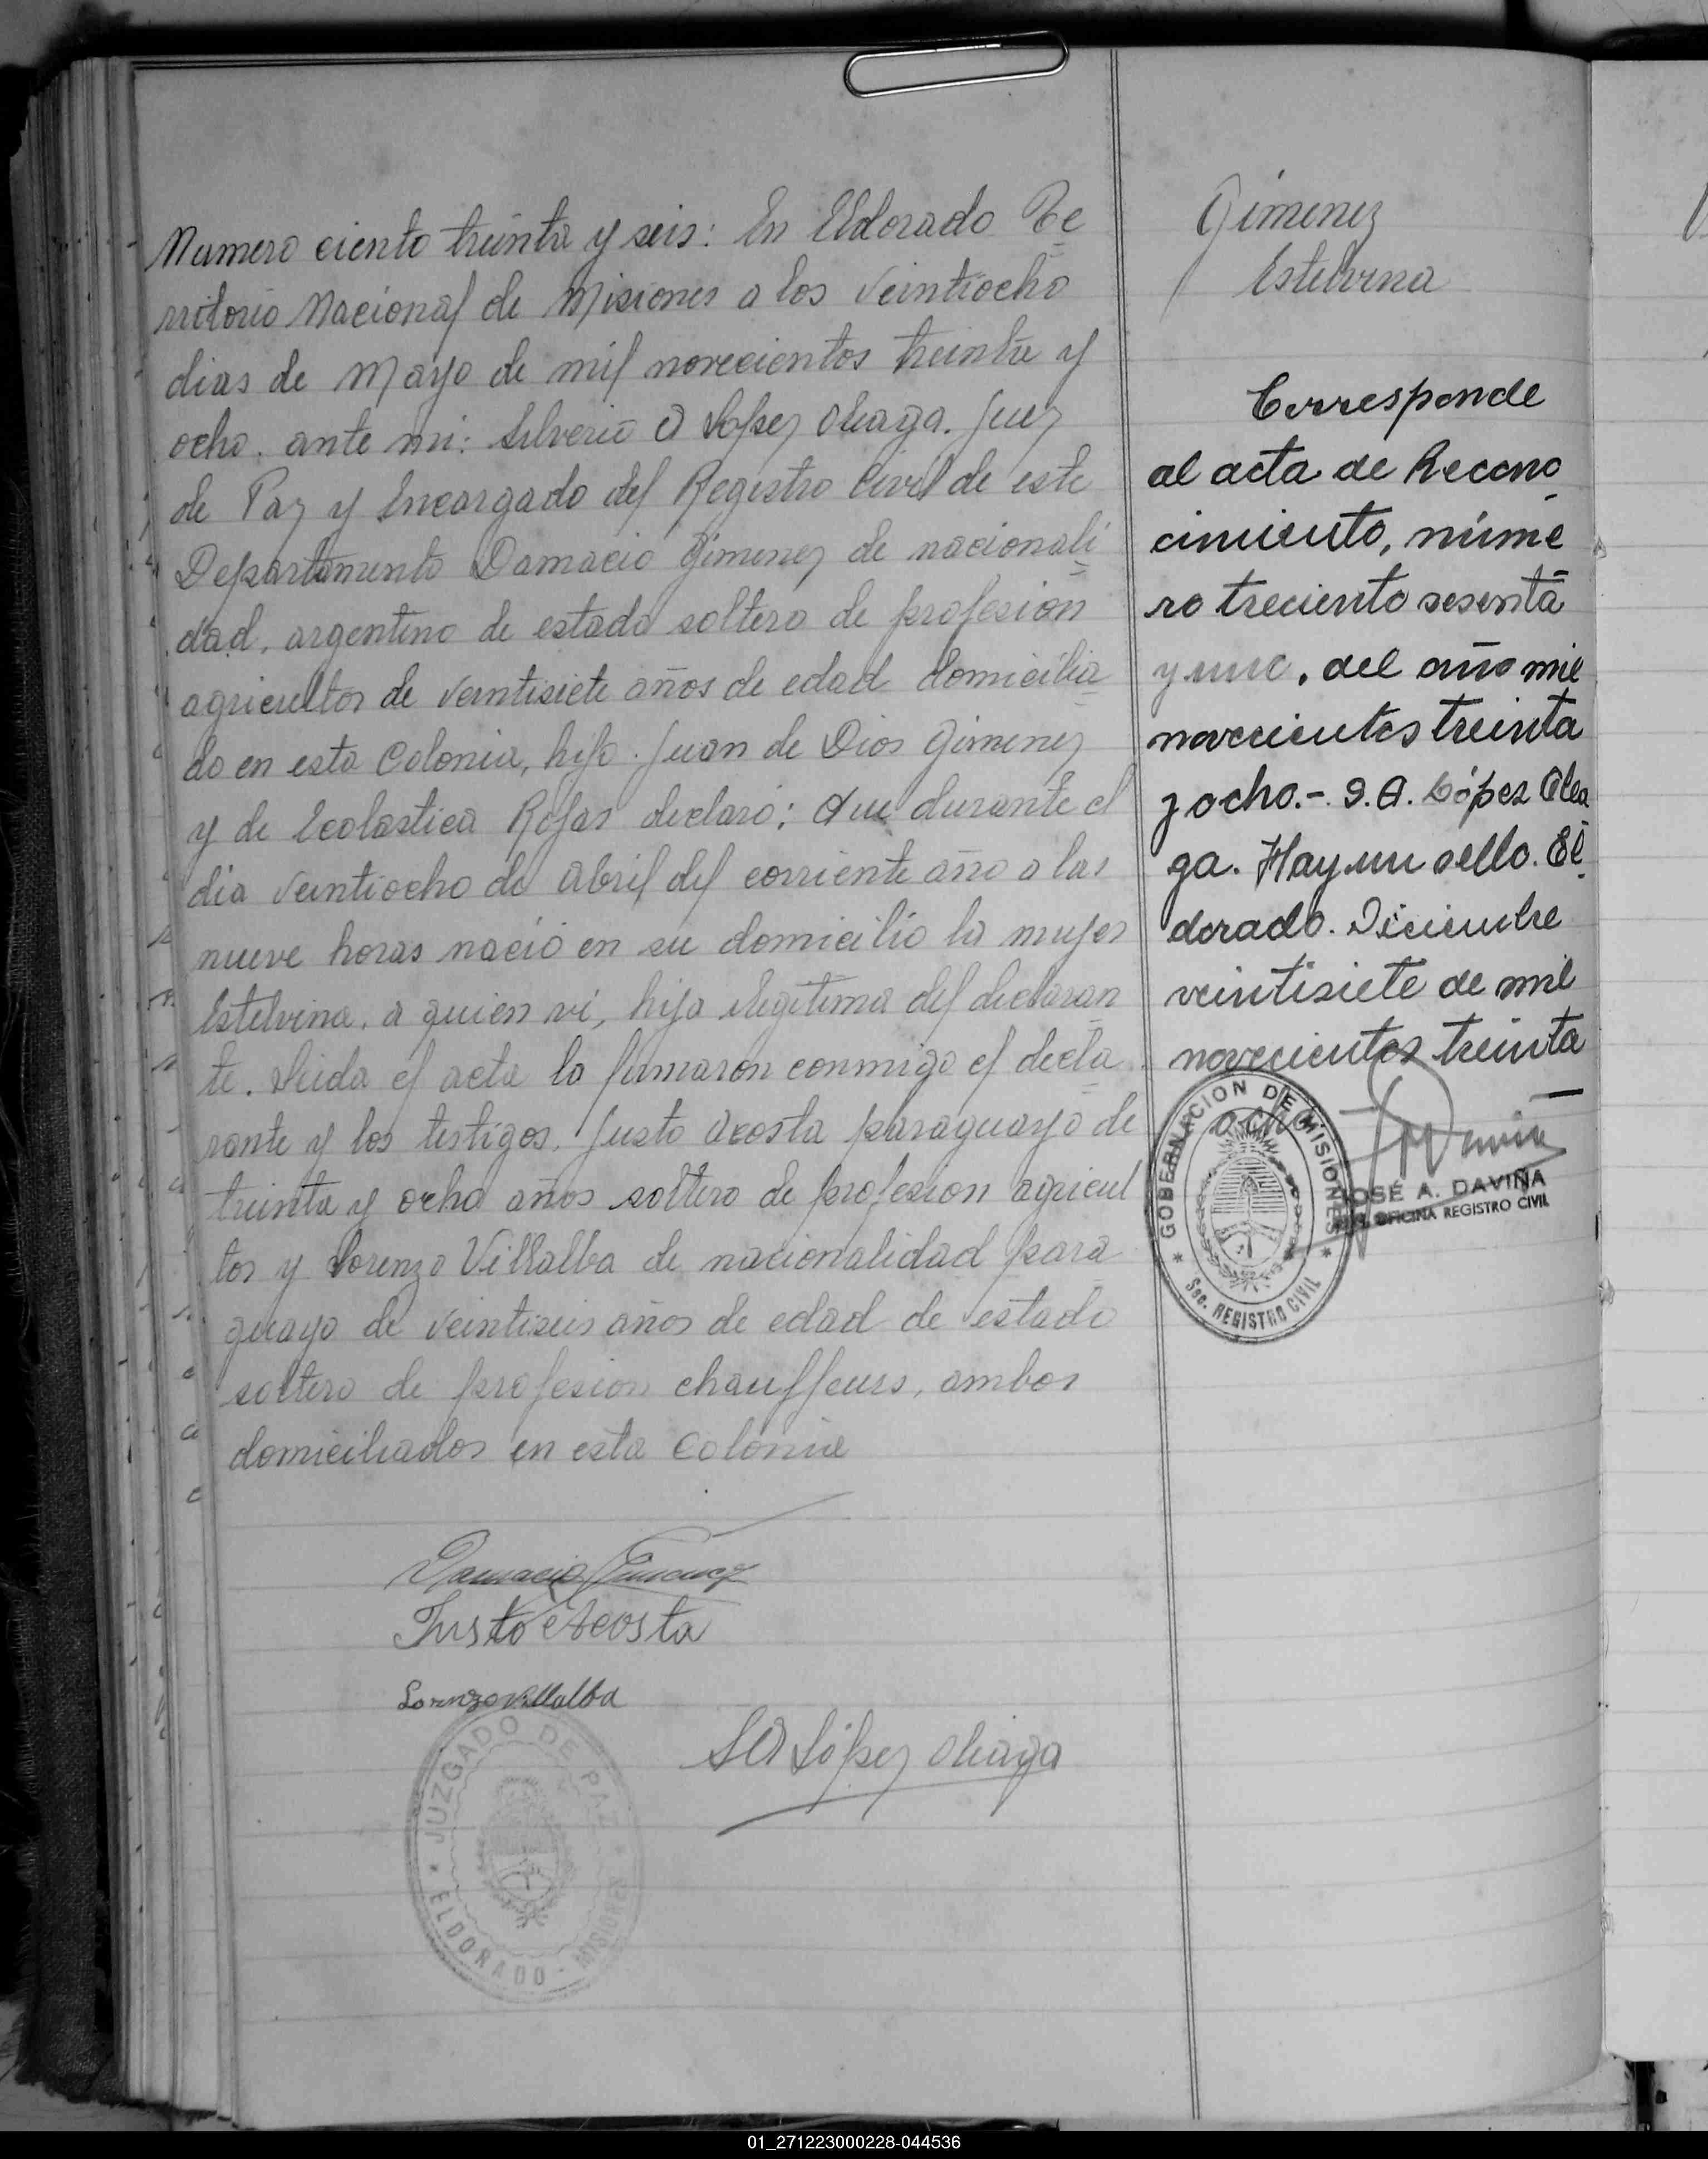 Numero ciento treinta y seis: En Eldorado Te
rritorio Nacional de Misiones a los veintiocho
dias de Mayo de mil novecientos treinta y
ocho. ante mi: Silverio A López Oliaga. Juez
de Paz y Encargado del Registro Civil de este
Departamento Damacio Gimenez de nacionali
dad, argentino de estado soltero de profesion
agricultor de veintisiete años de edad domicilia
do en esta Colonia, hijo. Juan de Dios Gimenez
y de Ecolastica Rojas declaró; Que durante el
dia veintiocho de Abril del corriente año a las
nueve horas nació en su domicilio la mujer
Estelvina, a quien vi, hija ilegitima del declaran
te. Leida el acta la firmaron conmigo el decla
rante y los testigos. Justo Acosta paraguayo de
treinta y ocho años soltero de profesion agricul
tor y Lorenzo Villalba de nacionalidad para
guayo de veintiseis años de edad de estado
soltero de profesion chauffeurs, ambos
domiciliados en esta Colonia
Damacio Gimenez
Justo Acosta
Lorenzo Villalba
SA López Oliaga
JUZGADO DE PAZ
ELDORADO - MISIONES
Gimenez
Estelvina
Corresponde
al acta de Recono
cimiento, núme
ro treciento sesenta
y uno, del año mil
novecientos treinta
y ocho.- S. A. López Olea
ga. Hay un sello. El
dorado. Diciembre
veintisiete de mil
novecientos treinta
ocho
GOBERNACION DE MISIONES
Sec. REGISTRO CIVIL
JOSÉ A. DAVIÑA
OFICINA REGISTRO CIVIL
01_271223000228-044536